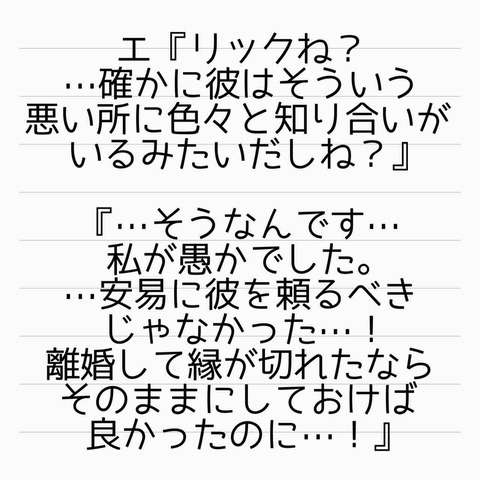 エ『リックね？
…確かに彼はそういう
悪い所に色々と知り合いが
いるみたいだしね？』
『…そうなんです…
私が愚かでした。
…安易に彼を頼るべき
じゃなかった…！
離婚して縁が切れたなら
そのままにしておけば
良かったのに…！』